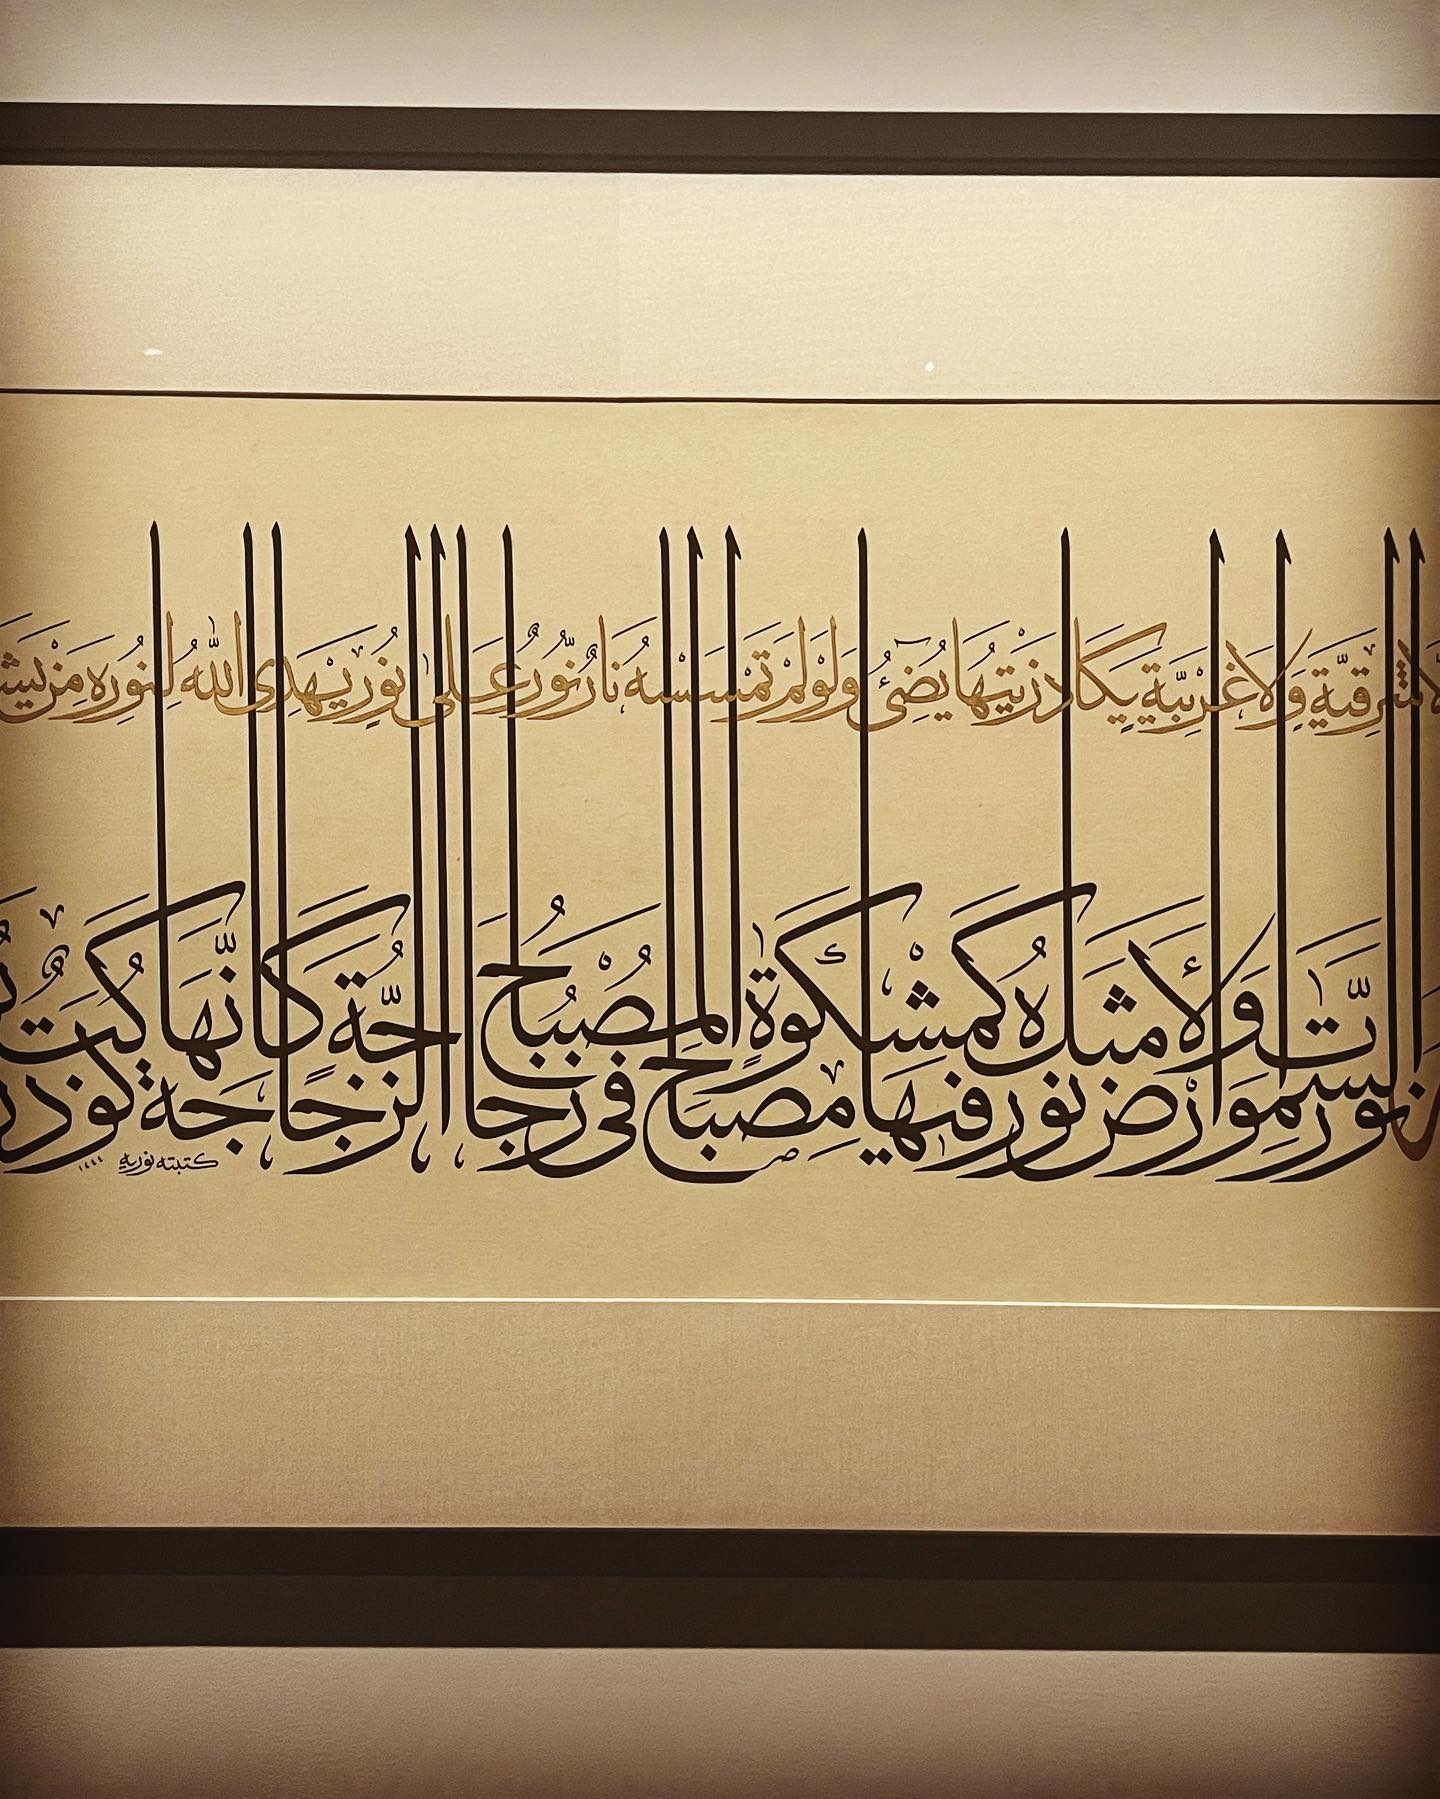 لَّا شَرْقِيَّةٍ وَلَا غَرْبِيَّةٍ يَكَادُ زَيْتُهَا يُضِيٓءُ وَلَوْ لَمْ تَمْسَسْهُ نَارٌ نُّورٌ عَلَىٰ نُورٍ يَهْدِى اللّٰهُ لِنُورِهِ مَنْ يَشَ
نُورُ السَّمٰوَاتِ وَالْأَرْضِ مَثَلُ نُورِهِ كَمِشْكٰوةٍ فِيهَا مِصْبَاحٌ الْمِصْبَاحُ فِى زُجَاجَةٍ الزُّجَاجَةُ كَأَنَّهَا كَوْكَبٌ دُرِّ
كتبته نورية ١٤٤٤